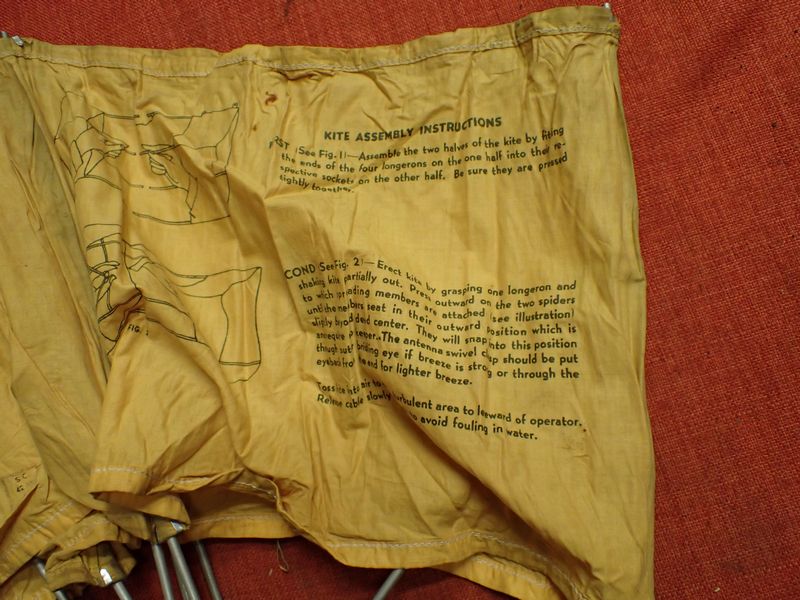 KITE ASSEMBLY INSTRUCTIONS
RST (See Fig. 1)—Assemble the two halves of the kite by fitting
the ends of the four longerons on the one half into their re-
spective sockets on the other half. Be sure they are pressed
tightly together.
COND (See Fig. 2)—Erect kite by grasping one longeron and
shaking kite partially out. Press outward on the two spiders
to which spreading members are attached (see illustration)
until the seat in their outward position which is
slightly center. They will snap into this position
The antenna swivel clip should be put
eye if breeze is strong or through the
end for lighter breeze.
Toss into air to turbulent area to leeward of operator.
Release cable slowly to avoid fouling in water.
FIG.